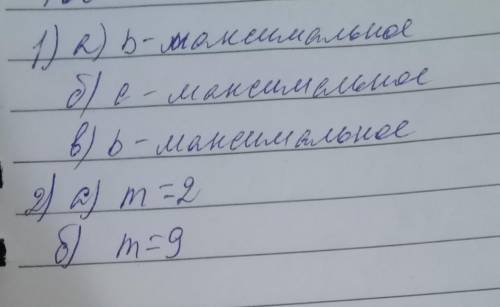 1) а) b - максимальное
б) c - максимальное
в) b - максимальное
2) а) m = 2
б) m = 9